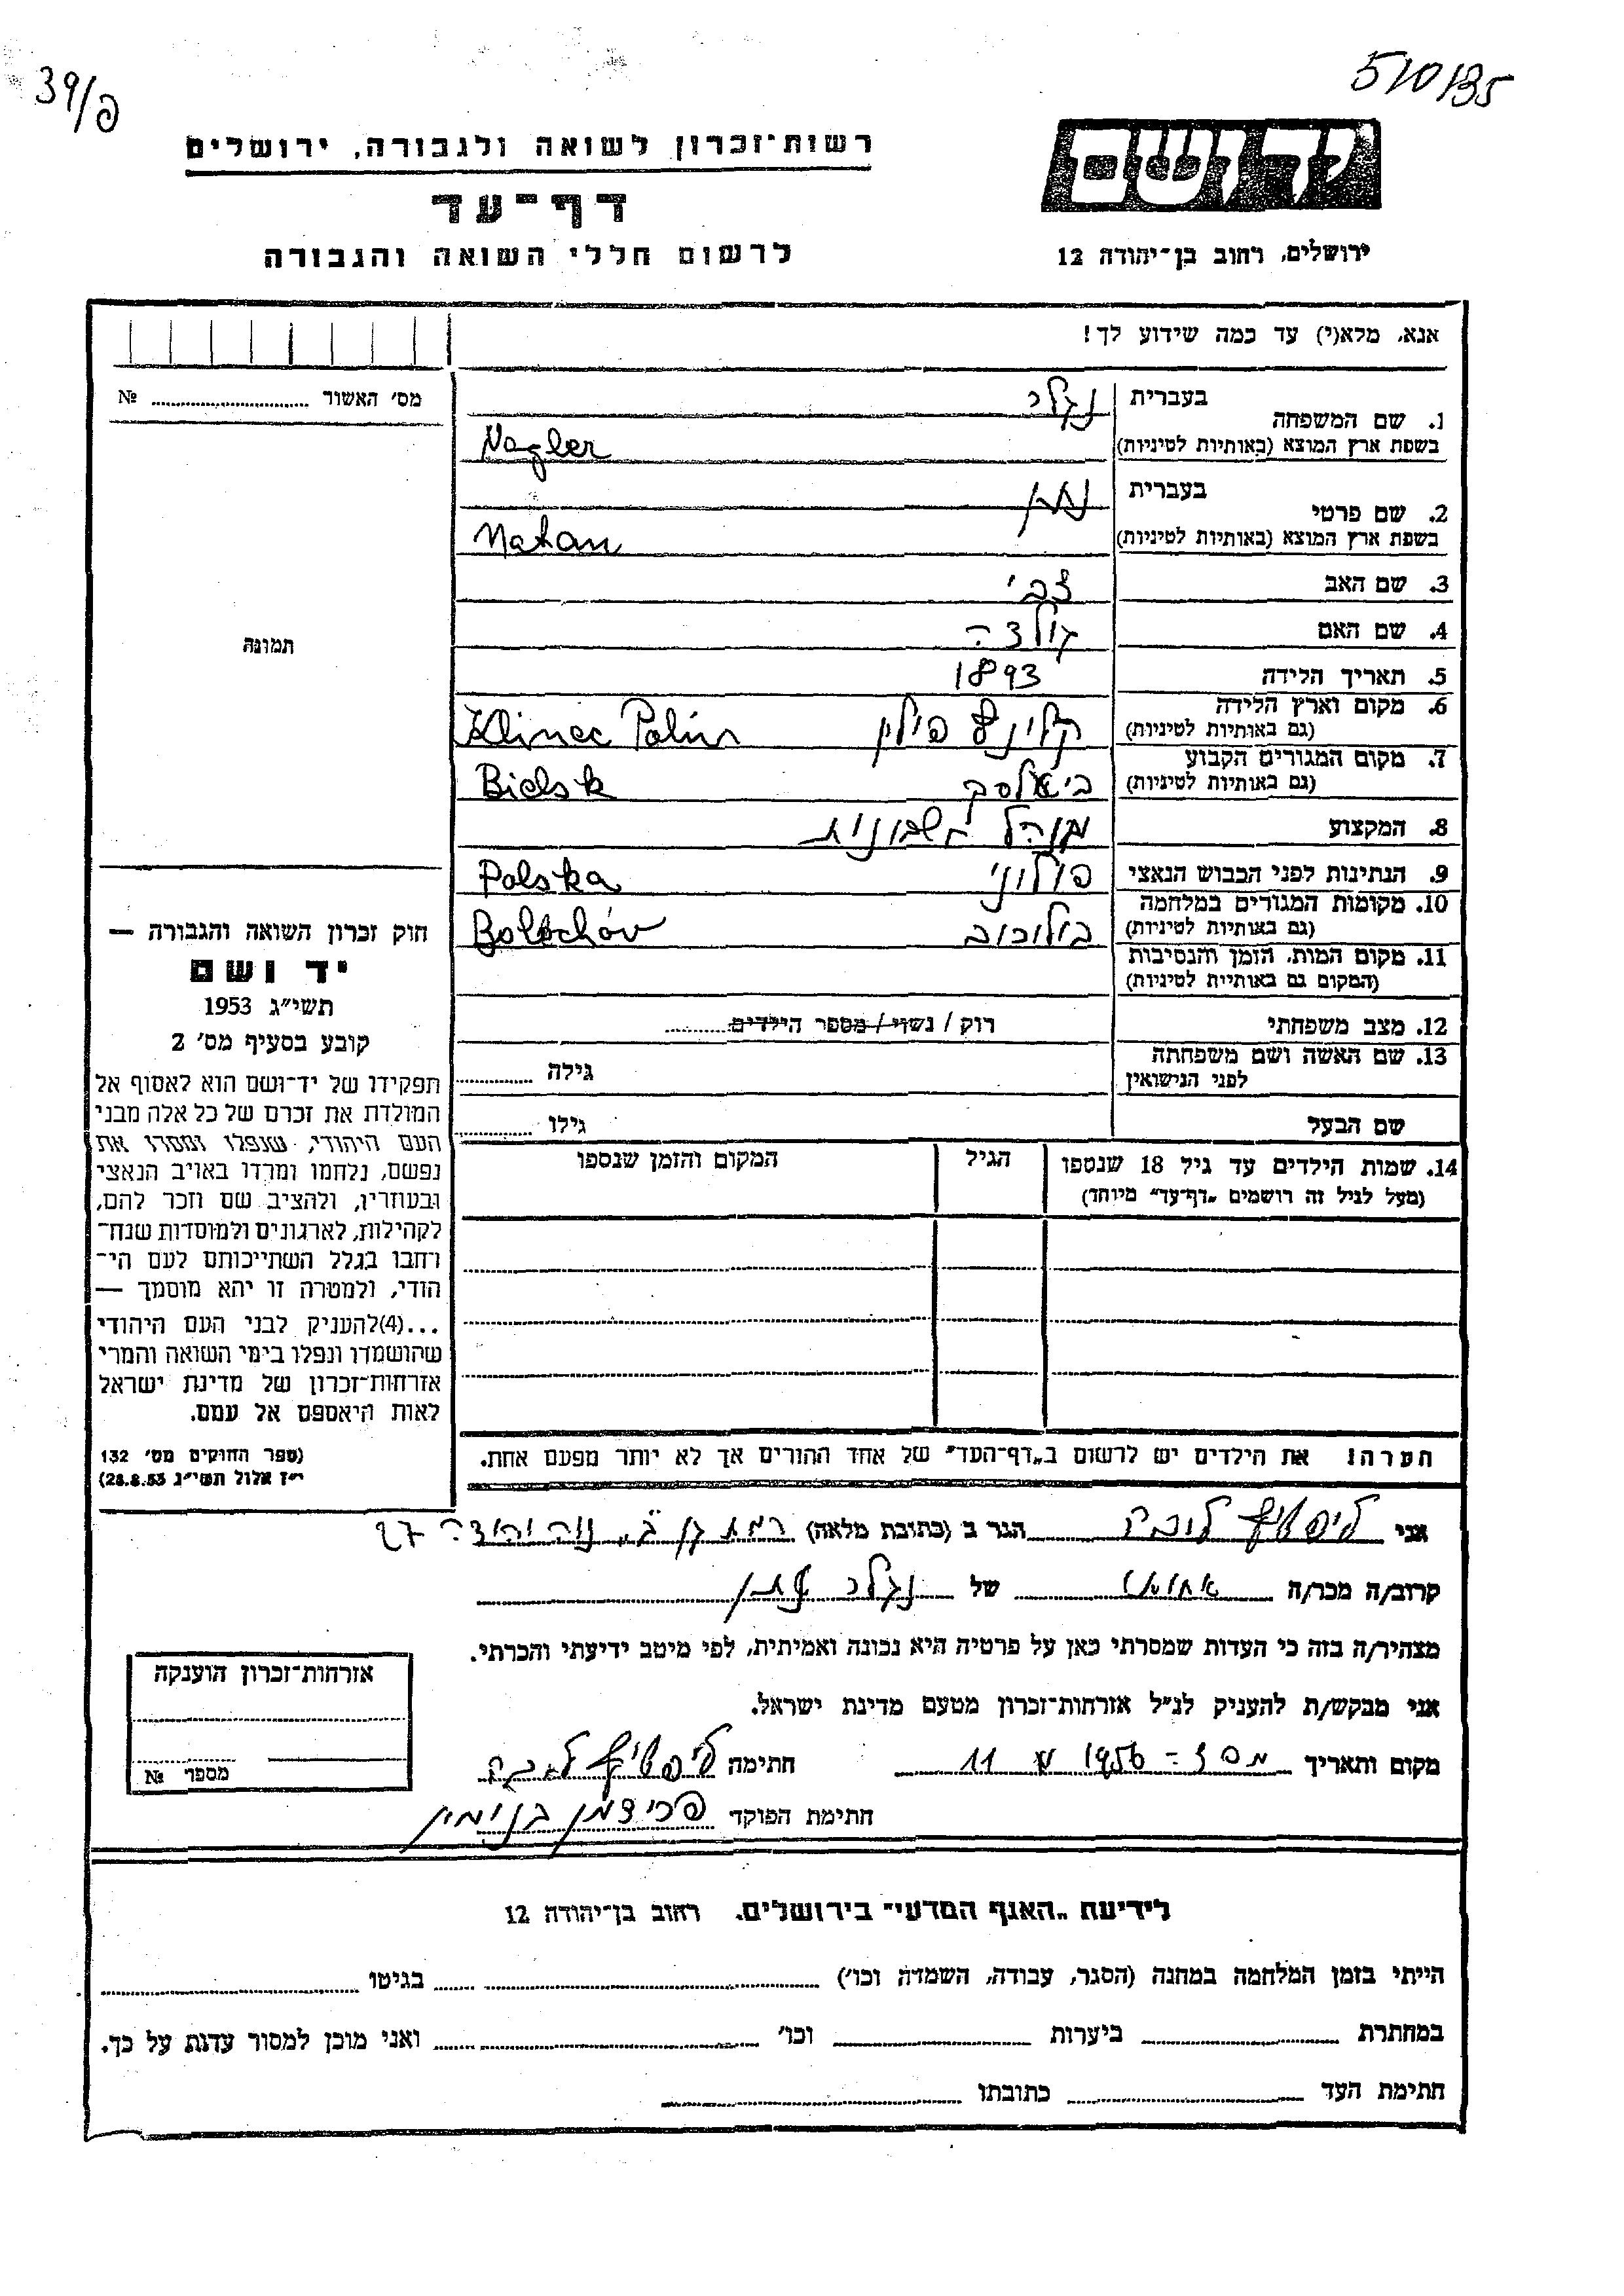 39/פ
510/35
רשות-זכרון לשואה ולגבורה, ירושלים
דף-עד
לרשום חללי השואה והגבורה
יד ושם
ירושלים, רחוב בן-יהודה 12
אנא, מלא(י) עד כמה שידוע לך!
מס׳ האשור № 
1. שם המשפחה
בעברית נגלר
בשפת ארץ המוצא (באותיות לטיניות) Nagler
2. שם פרטי
בעברית נתן
בשפת ארץ המוצא (באותיות לטיניות) Natan
3. שם האב צבי
4. שם האם גולדה
5. תאריך הלידה 1893
6. מקום וארץ הלידה
(גם באותיות לטיניות) קלינץ פולין Klinec Polin
7. מקום המגורים הקבוע
(גם באותיות לטיניות) Bielsk
8. המקצוע מנהל חשבונות
9. הנתינות לפני הכבוש הנאצי פולוני Polska
10. מקומות המגורים במלחמה
(גם באותיות לטיניות) בולוכוב Bolochów
11. מקום המות, הזמן והנסיבות
(המקום גם באותיות לטיניות)
12. מצב משפחתי רוק / נשוי / מספר הילדים
13. שם האשה ושם משפחתה
לפני הנישואין גילה
שם הבעל גילו
14. שמות הילדים עד גיל 18 שנספו
(מעל לגיל זה רושמים „דף-עד״ מיוחד)
הגיל
המקום והזמן שנספו
תמונה
חוק זכרון השואה והגבורה —
יד ושם
תשי״ג 1953
קובע בסעיף מס׳ 2
תפקידו של יד-ושם הוא לאסוף אל
המולדת את זכרם של כל אלה מבני
העם היהודי, שנפלו ומסרו את
נפשם, נלחמו ומרדו באויב הנאצי
ובעוזריו, ולהציב שם וזכר להם,
לקהילות, לארגונים ולמוסדות שנח-
רחבו בגלל השתייכותם לעם הי-
הודי, ולמטרה זו יהא מוסמך —
...(4)להעניק לבני העם היהודי
שהושמדו ונפלו בימי השואה והמרי
אזרחות-זכרון של מדינת ישראל
לאות היאספם אל עמם.
(ספר החוקים מס׳ 132
י״ז אלול תשי״ג 28.8.53)
הערה: את הילדים יש לרשום ב„דף-העד״ של אחד ההורים אך לא יותר מפעם אחת.
אני ליפשיץ לובה הגר ב (כתובת מלאה) רמת גן ג׳, נוה יהודה 27
קרוב/ה מכר/ה אחותו של נגלר נתן
מצהיר/ה בזה כי העדות שמסרתי כאן על פרטיה היא נכונה ואמיתית, לפי מיטב ידיעתי והכרתי.
אני מבקש/ת להעניק לנ״ל אזרחות-זכרון מטעם מדינת ישראל.
מקום ותאריך 1956 11 חתימה ליפשיץ לובה
חתימת הפוקד פרידמן בנימין
אזרחות-זכרון הוענקה
מספר №
לידיעת „האגף המדעי״ בירושלים. רחוב בן-יהודה 12
הייתי בזמן המלחמה במחנה (הסגר, עבודה, השמדה וכו׳) בגיטו
במחתרת ביערות וכו׳ ואני מוכן למסור עדות על כך.
חתימת העד כתובתו